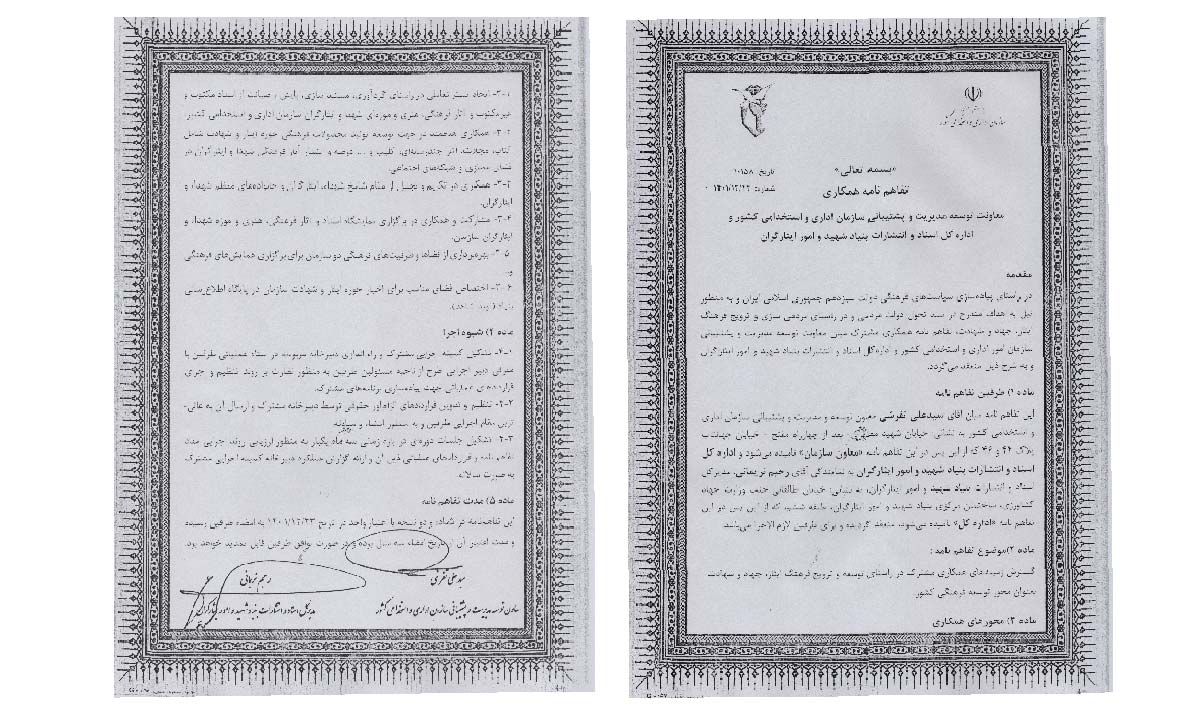 سازمان اداری و استخدامی کشور
«بسمه تعالی»
تاریخ: ۱۰۱۵۸
تفاهم نامه همکاری
شماره: ۱۴۰۱/۱۲/۲۲
معاونت توسعه مدیریت و پشتیبانی سازمان اداری و استخدامی کشور و
اداره کل اسناد و انتشارات بنیاد شهید و امور ایثارگران
مقدمه
در راستای پیاده‌سازی سیاست‌های فرهنگی دولت سیزدهم جمهوری اسلامی ایران و به منظور
نیل به اهداف مندرج در سند تحول دولت مردمی و در راستای مردمی سازی و ترویج فرهنگ
ایثار، جهاد و شهادت، تفاهم نامه همکاری مشترک مابین معاونت توسعه مدیریت و پشتیبانی
سازمان امور اداری و استخدامی کشور و اداره‌کل اسناد و انتشارات بنیاد شهید و امور ایثارگران
و به شرح ذیل منعقد می‌گردد.
ماده ۱) طرفین تفاهم نامه
این تفاهم نامه میان آقای سیدعلی تفرشی معاون توسعه و مدیریت و پشتیبانی سازمان اداری
و استخدامی کشور به نشانی: خیابان شهید بعد از چهارراه مفتح - خیابان
پلاک ۴۴ و ۴۶ که از این پس در این تفاهم نامه «معاون سازمان» نامیده می‌شود و اداره کل
اسناد و انتشارات بنیاد شهید و امور ایثارگران به نمایندگی آقای رحیم نریمانی، مدیرکل
اسناد و انتشارات بنیاد شهید و امور ایثارگران، به نشانی: خیابان طالقانی جنب وزارت جهاد
کشاورزی، ساختمان مرکزی بنیاد شهید و امور ایثارگران، طبقه ششم که از این پس در این
تفاهم نامه «اداره کل» نامیده می‌شود، منعقد گردیده و برای طرفین لازم الاجرا می‌باشد.
ماده ۲)موضوع تفاهم نامه :
گسترش زمینه‌های همکاری مشترک در راستای توسعه و ترویج فرهنگ ایثار، جهاد و شهادت
بعنوان محور توسعه فرهنگی کشور.
ماده ۳) محورهای همکاری
۳-۱- ایجاد بستر تعاملی در راستای گردآوری، مستند سازی، پایش و صیانت از اسناد مکتوب و
غیرمکتوب و آثار فرهنگی، هنری و موزه‌ای شهدا و ایثارگران سازمان اداری و استخدامی کشور.
۳-۲- همکاری هدفمند در جهت توسعه تولید محصولات فرهنگی حوزه ایثار و شهادت شامل
کتاب، مجلات، آثار چندرسانه‌ای، کلیپ و ... عرضه و انتشار آثار فرهنگی شهدا و ایثارگران در
فضای مجازی و شبکه‌های اجتماعی.
۳-۳- همکاری در تکریم و تجلیل از مقام شامخ شهدا، ایثارگران و خانواده‌های معظم شهدا و
ایثارگران.
۳-۴- مشارکت و همکاری در برگزاری نمایشگاه اسناد و آثار فرهنگی، هنری و موزه شهدا و
ایثارگران سازمان.
۳-۵- بهره‌برداری از فضاها و ظرفیت‌های فرهنگی دو سازمان برای برگزاری همایش‌های فرهنگی
و...
۳-۶- اختصاص فضای مناسب برای اخبار حوزه ایثار و شهادت سازمان در پایگاه اطلاع‌رسانی
بنیاد (نوید شاهد).
ماده ۴) شیوه اجرا
۴-۱- تشکیل کمیته اجرایی مشترک و راه اندازی دبیرخانه مربوطه در ستاد عملیاتی طرفین با
معرفی دبیر اجرایی طرح از ناحیه مسئولین طرفین به منظور نظارت بر روند تنظیم و اجرای
قراردادهای عملیاتی جهت پیاده‌سازی برنامه‌های مشترک.
۴-۲- تنظیم و تدوین قراردادهای الزام‌آور حقوقی توسط دبیرخانه مشترک و ارسال آن به عالی-
ترین مقام اجرایی طرفین و به منظور امضاء و مبادله.
۴-۳- تشکیل جلسات دوره‌ای در بازه زمانی سه ماه یکبار به منظور ارزیابی روند اجرایی مفاد
تفاهم نامه و قراردادهای عملیاتی ذیل آن و ارائه گزارش عملکرد دبیرخانه کمیته اجرایی مشترک
به صورت سالانه.
ماده ۵) مدت تفاهم نامه
این تفاهم‌نامه در ۵ماده و دو نسخه با اعتبار واحد در تاریخ ۱۴۰۱/۱۲/۲۳ به امضاء طرفین رسیده
و مدت اعتبار آن از تاریخ امضاء سه سال بوده و در صورت توافق طرفین قابل تمدید خواهد بود.
سید علی تفرشی
رحیم نریمانی
معاون توسعه مدیریت و پشتیبانی سازمان اداری و استخدامی کشور
مدیرکل اسناد و انتشارات بنیاد شهید و امور ایثارگران